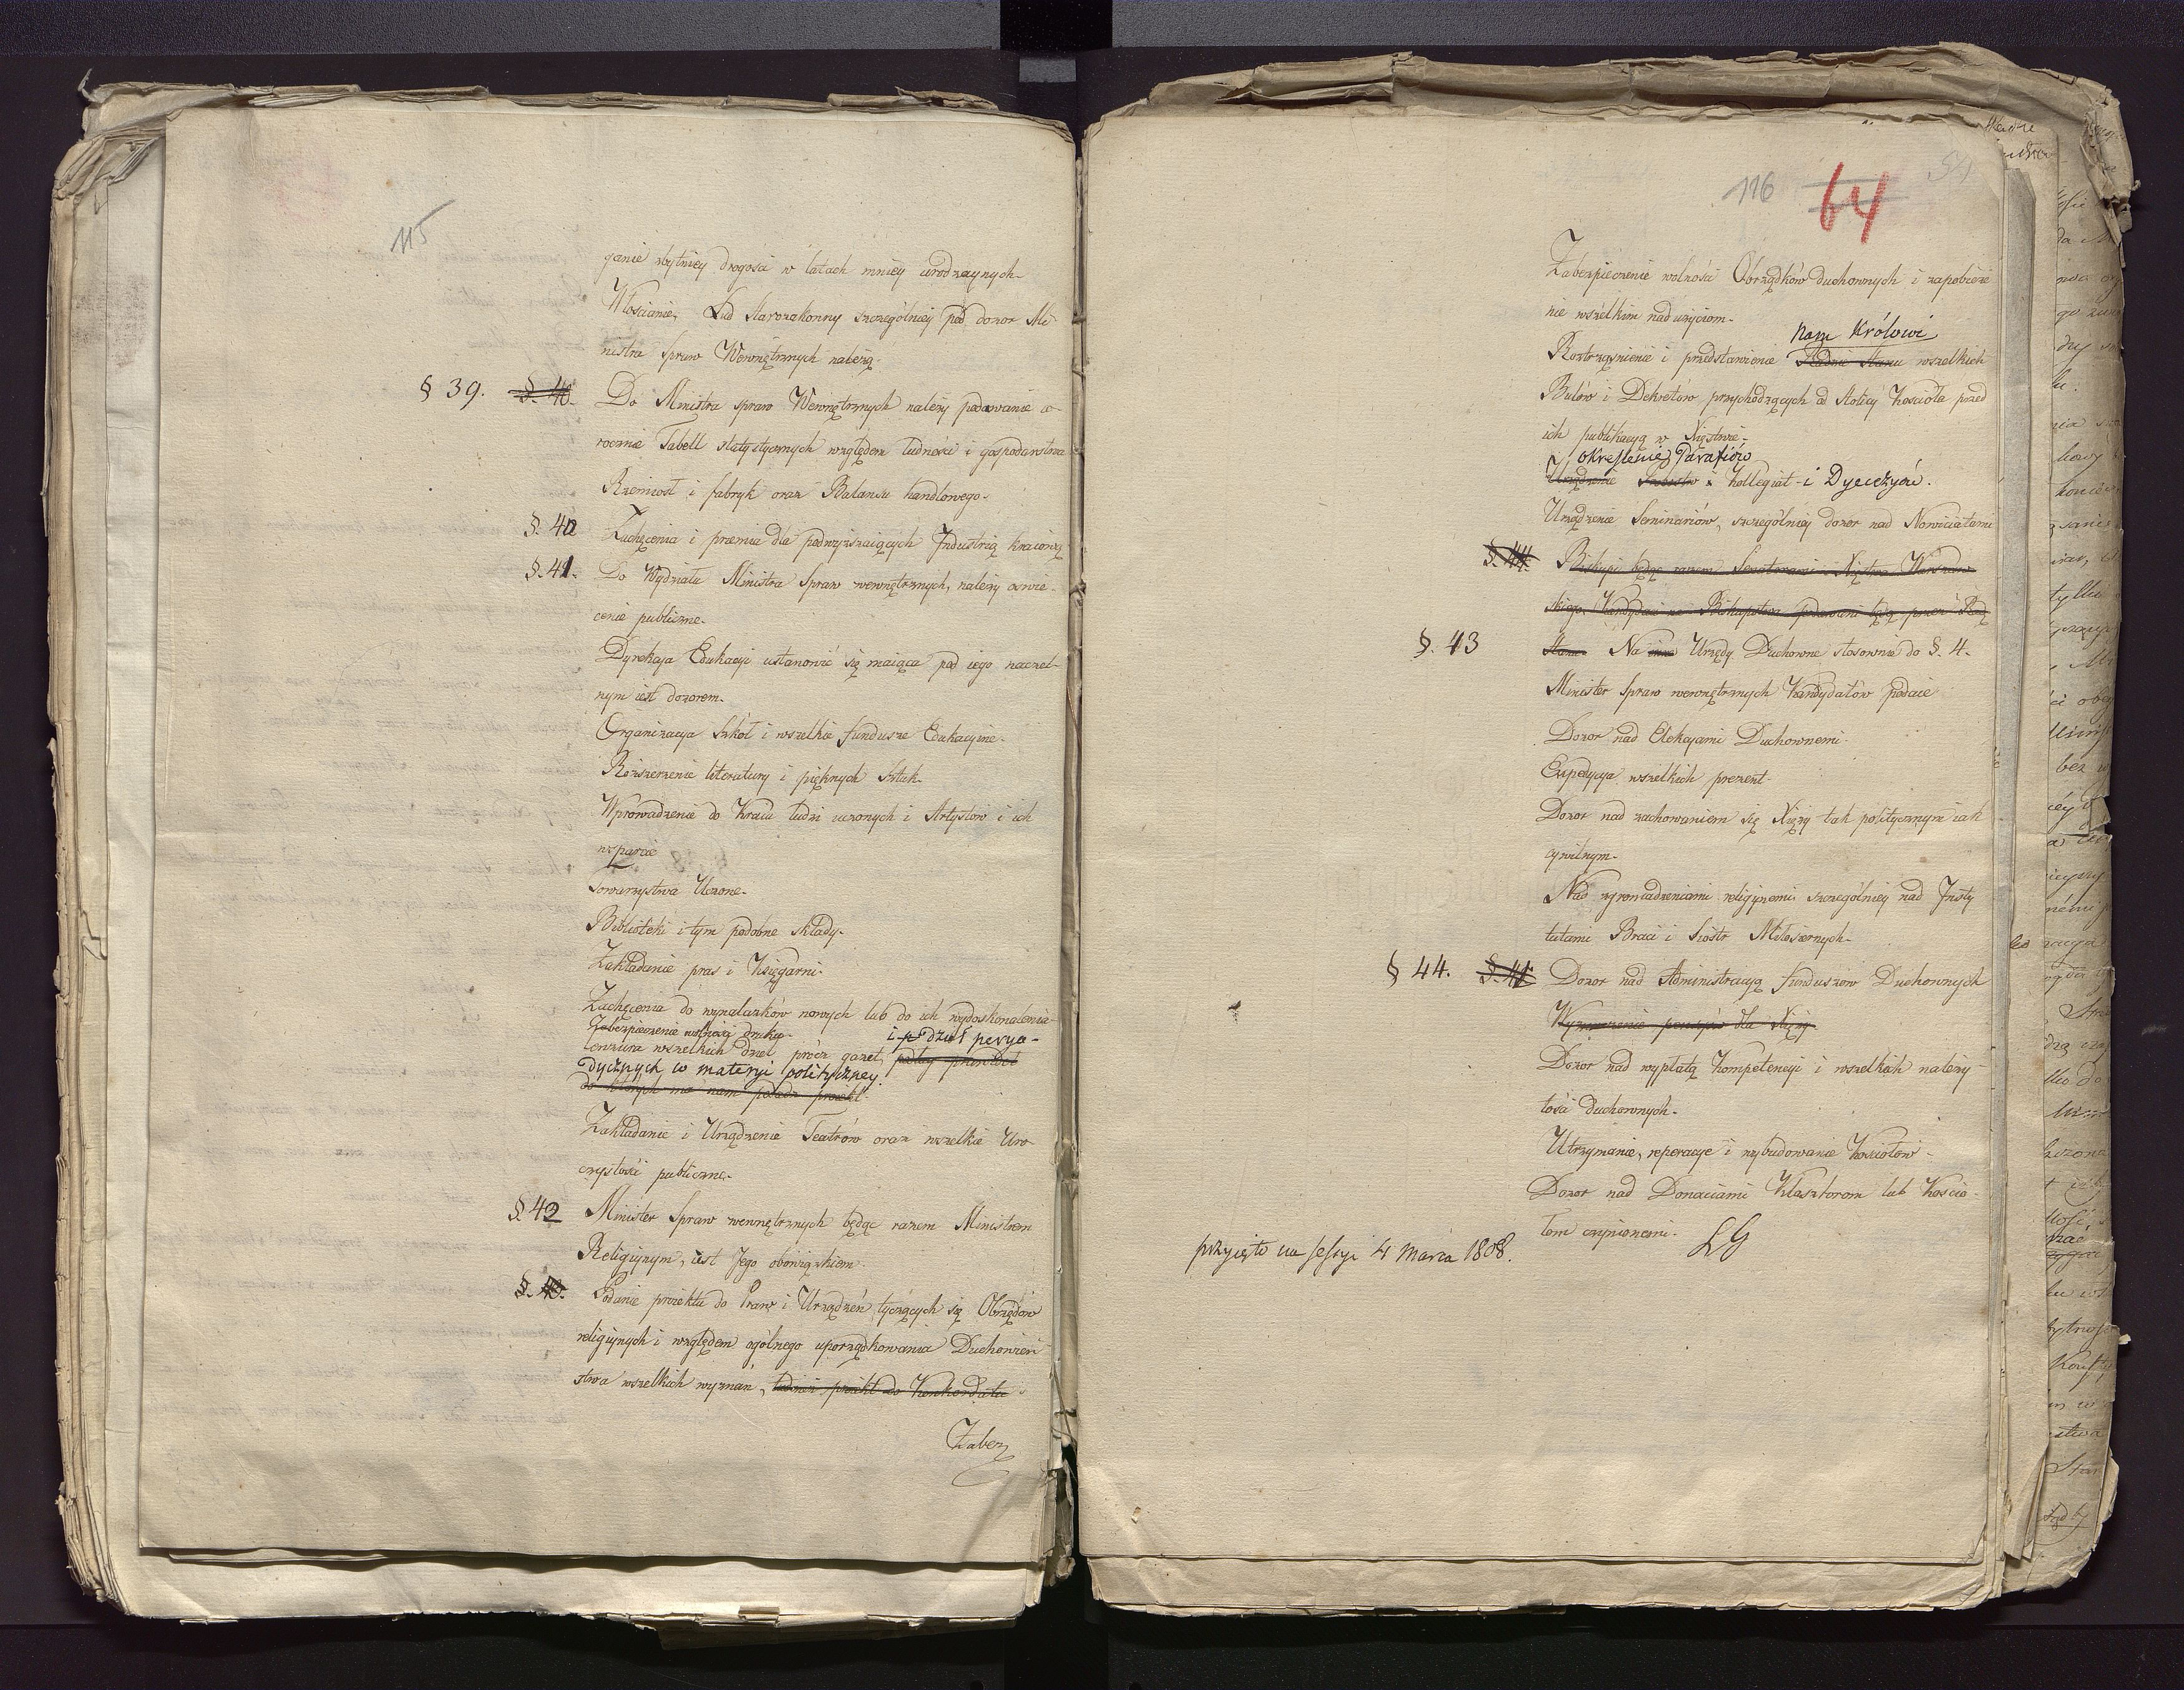 115
ganie zbytniey drogości w latach mniey urodzaynych.
Włościanie, Lud starozakonny szczególniey pod dozor Mi-
nistra Spraw Wewnętrznych należą.
§ 39. §. 40. Do Ministra spraw Wewnętrznych należy podawanie co-
rocznie Tabell statystycznych względem ludności i gospodarstwa
Rzemiosł i fabryk oraz Balansu handlowego.
§. 40 Zachęcenia i premia dla podwyższaiących Industrią kraiową
§. 41. Do Wydziału Ministra Spraw wewnętrznych, należy oświe-
cenie publiczne.
Dyrekcya Edukacyi ustanowić się maiąca pod iego naczel-
nym iest dozorem.
Organizacya Szkół i wszelkie fundusze Edukacyine.
Rozszerzenie literatury i pięknych Sztuk.
Wprowadzenie do Kraiu ludzi uczonych i Artystów i ich
wsparcie
Towarzystwa Uczone.
Biblioteki i tym podobne składy.
Zakładanie pras i Księgarni.
Zachęcenia do wynalazków nowych lub do ich wydoskonalenia
Zabezpieczenie wolności druku.
i podzieł perya-
Cenzura wszelkich dzieł, prócz gazet,
dycznych w materyi polityczney.
do których ma nam podadź proiekt.
Zakładanie i Urządzenie Teatrów oraz wszelkie Uro-
czystości publiczne.
§. 42 Minister Spraw wewnętrznych będąc razem Ministrem
Religiynym, iest Jego obowiązkiem.
§. 43. Podanie proiektu do Praw i Urządzeń tyczących się Obrzędów
religiynych i względem ogólnego uporządkowania Duchowień
stwa wszelkich wyznań, tudzież proiekt do Konkordatu
Zabez
116 64 54
Zabezpieczenie wolności Obrządków duchownych i zapobieże
nie wszelkim nadużyciom.
Nam Królowi
Roztrząśnienie i przedstawienie Radzie Stanu wszelkich
Bulów i Dekretów przychodzących od Stolicy Kościoła przed
ich publikacyą w Xięstwie.
określenie Parafiów
Urządzenie i Kollegiat i Dyecezyów.
Urządzenie Seminariów, szczególniey dozor nad Nowiciatami
§. 44. Biskupi będąc razem Senatorami Xięstwa Warszaw
skiego, Kandydaci na Biskupstwa podawani będą przez Radę
§. 43 Stanu. Na inne Urzędy Duchowne stosownie do §. 4.
Minister Spraw wewnętrznych Kandydatów podaie
Dozor nad Elekcyami Duchownemi.
Expedycya wszelkich prezent.
Dozor nad zachowaniem się Xięży tak politycznym iak
cywilnym.
Nad zgromadzeniami religiynemi szczególniey nad Insty
tutami Braci i Sióstr Miłosiernych.
§ 44. §. 45 Dozor nad Administracyą funduszów Duchownych
Wyznaczenie pensyów dla Xięży.
Dozor nad wypłatą Kompetencyi i wszelkich należy-
tości duchownych.
Utrzymanie, reperacye i wybudowanie Kościołów.
Dozor nad Donacyami Klasztorom lub Kościo-
łom czynionemi. LG
przyięto na sessyi 4 Marca 1808.